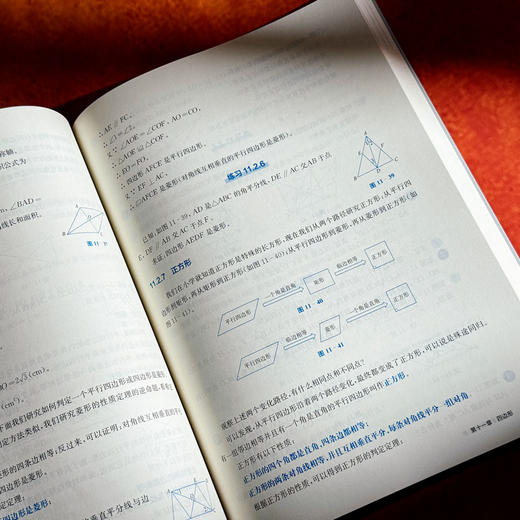 称轴,
积公式为
, ∠BAD=
线长和面积.
图 11-
BO=2√3(cm).
(cm²).
下面我们研究如何判定一个平行四边形或四边形是菱形.
定方法类似,我们研究菱形的性质定理的逆命题,看看它
形的四条边相等;反过来,可以证明,对角线互相垂直的平行
定理:
边形是菱形;
垂直平分线与边
∴AE∥FC,
∴∠1=∠2.
又∵∠AOE=∠COF, AO=CO,
∴△AOE≌△COF.
∴EO=FO.
∴四边形 AFCE 是平行四边形.
又∵EF⊥AC,
∴▱AFCE 是菱形(对角线互相垂直的平行四边形是菱形).
练习 11.2.6
已知:如图 11-39, AD 是△ABC 的角平分线, DE∥AC 交 AB 于点
E, DF∥AB 交 AC 于点 F.
求证:四边形 AEDF 是菱形.
图 11-39
11.2.7 正方形
我们在小学就知道正方形是特殊的长方形,现在我们从两个路径研究正方形:从平行四
边形到矩形,再从矩形到正方形(如图 11-40);从平行四边形到菱形,再从菱形到正方形(如
图 11-41).
平行四边形 一个角是直角 矩形 临边相等 正方形
图 11-40
平行四边形 临边相等 菱形 一个角是直角 正方形
图 11-41
观察上述两个变化路径,有什么相同点和不同点?
可以发现,从平行四边形沿着两个路径变化,最终都变成了正方形,可以说是殊途同归.
有一组邻边相等并且有一个角是直角的平行四边形叫作正方形.
正方形有以下性质:
正方形的四个角都是直角,四条边都相等;
正方形的两条对角线相等,并且互相垂直平分,每条对角线平分一组对角.
根据正方形的性质,可以得到正方形的判定定理:
第十一章 四边形